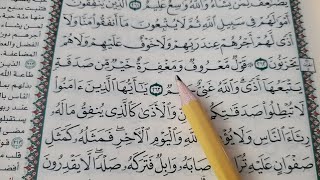 يُضَٰعِفُ لِمَن يَشَآءُ وَٱللَّهُ وَٰسِعٌ عَلِيمٌ ٢٦١ ٱلَّذِينَ يُنفِقُونَ
أَمْوَٰلَهُمْ فِى سَبِيلِ ٱللَّهِ ثُمَّ لَا يُتْبِعُونَ مَآ أَنفَقُوا۟ مَنًّا وَلَآ
أَذًى لَّهُمْ أَجْرُهُمْ عِندَ رَبِّهِمْ وَلَا خَوْفٌ عَلَيْهِمْ وَلَا هُمْ
يَحْزَنُونَ ٢٦٢ ۞ قَوْلٌ مَّعْرُوفٌ وَمَغْفِرَةٌ خَيْرٌ مِّن صَدَقَةٍ
يَتْبَعُهَآ أَذًى وَٱللَّهُ غَنِىٌّ ٢٦٣ يَٰٓأَيُّهَا ٱلَّذِينَ ءَامَنُوا۟
لَا تُبْطِلُوا۟ صَدَقَٰتِكُم وَٱلْأَذَىٰ كَٱلَّذِى يُنفِقُ مَالَهُۥ
رِئَآءَ ٱلنَّاسِ وَلَا يُؤْمِنُ وَٱلْيَوْمِ ٱلْءَاخِرِ فَمَثَلُهُۥ كَمَثَلِ
صَفْوَانٍ عَلَيْهِ تُرَابٌ فَأَصَابَهُۥ وَابِلٌ فَتَرَكَهُۥ صَلْدًا لَّا يَقْدِرُونَ